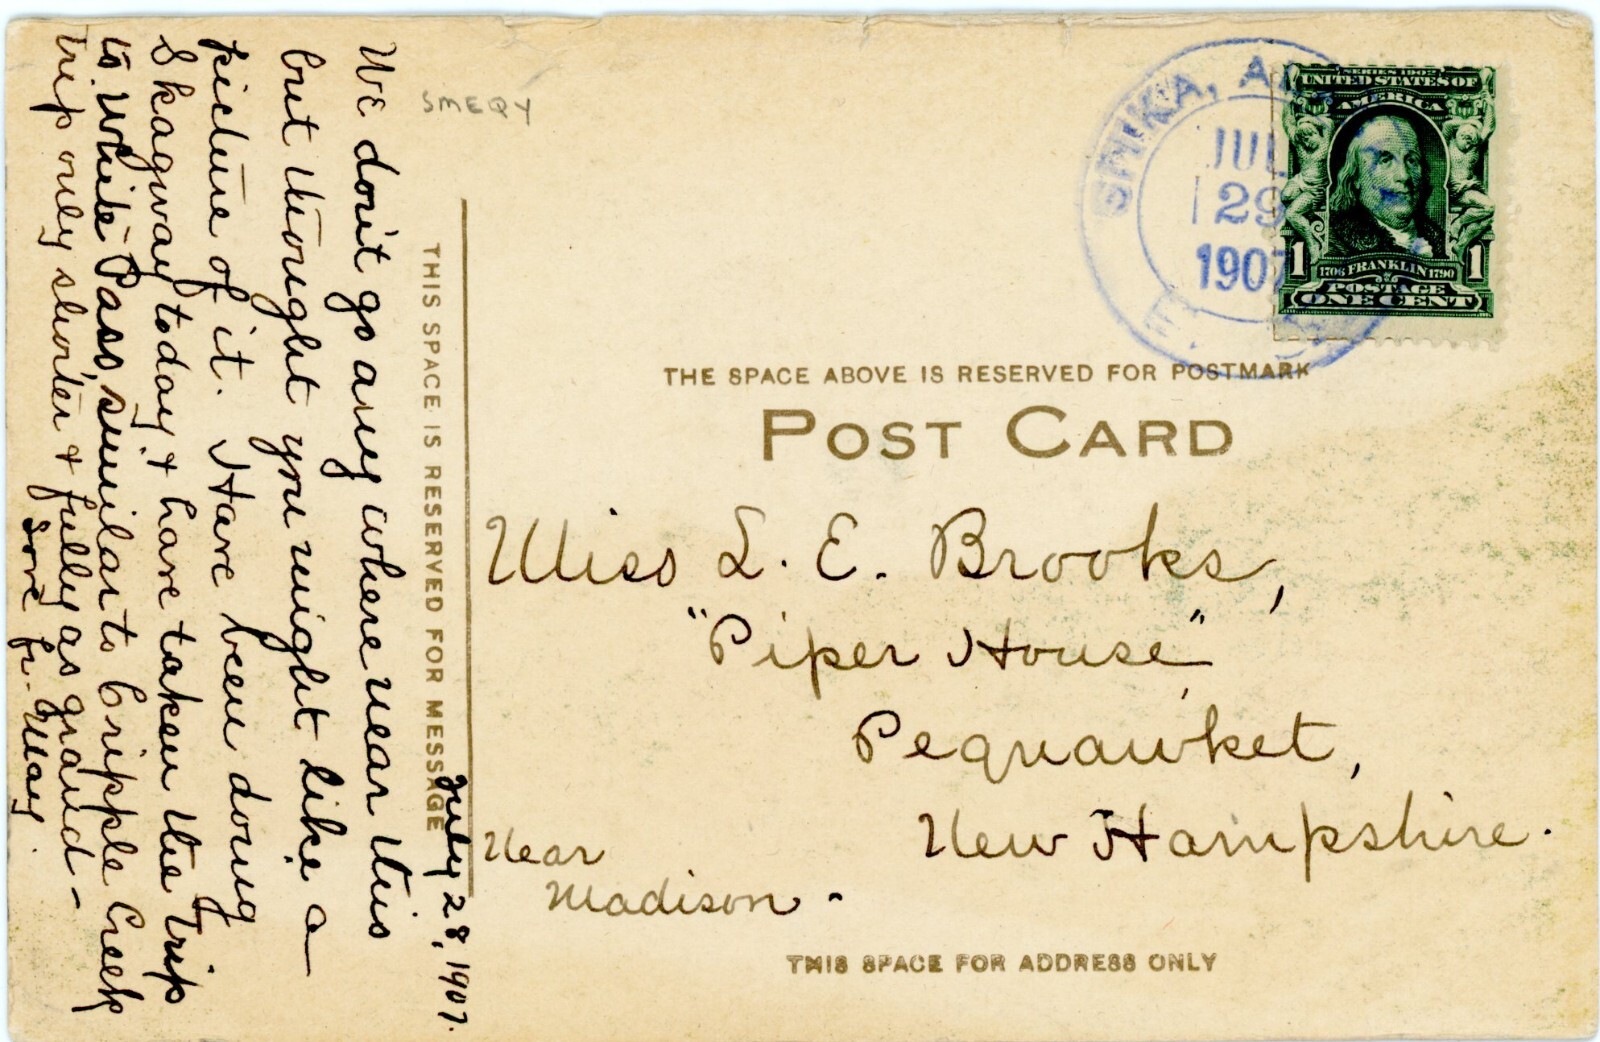 July 28, 1907.
We don't go any where near this
but thought you might like a
picture of it. Have been doing
Skagway today & have taken the trip
to White Pass, similar to Cripple Creek
trip only shorter & fully as grand –
Love fr. May.
SMEQY
THIS SPACE IS RESERVED FOR MESSAGE
SITKA,
JUL
29
1907
SERIES 1902
UNITED STATES OF
AMERICA
1 1
1706 FRANKLIN 1790
POSTAGE
ONE CENT
THE SPACE ABOVE IS RESERVED FOR POSTMARK
POST CARD
Miss L. E. Brooks,
"Piper House",
Pequawket,
New Hampshire.
Near
Madison.
THIS SPACE FOR ADDRESS ONLY